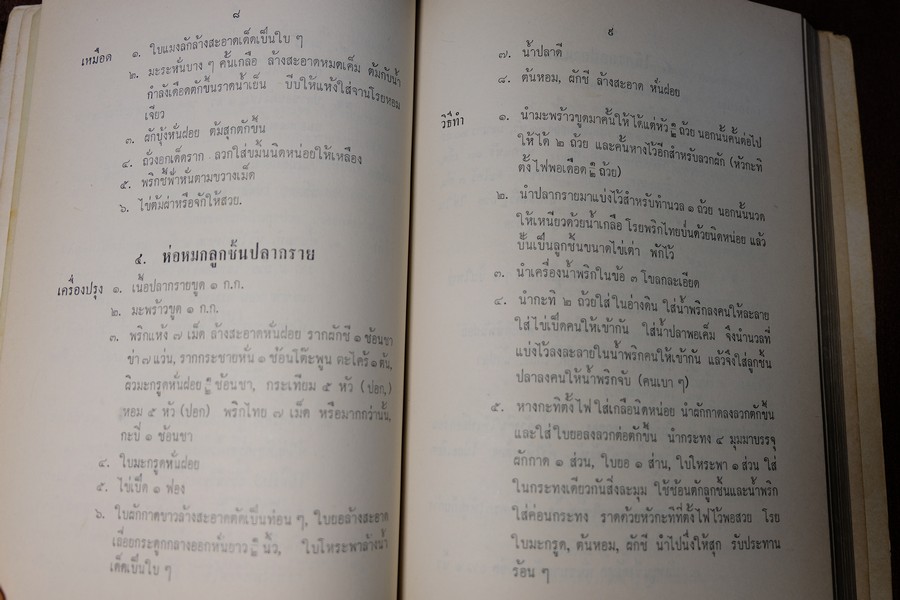 ๘
เหมือด ๑. ใบแมงลักล้างสะอาดเด็ดเป็นใบ ๆ
๒. มะระหั่นบาง ๆ คั้นเกลือ ล้างสะอาดหมดเค็ม ต้มกับน้ำ
กำลังเดือดตักขึ้นราดน้ำเย็น บีบให้แห้งใส่จานโรยหอม
เจียว
๓. ผักบุ้งหั่นฝอย ต้มสุกตักขึ้น
๔. ถั่วงอกเด็ดราก ลวกใส่ขมิ้นนิดหน่อยให้เหลือง
๕. พริกชี้ฟ้าหั่นตามขวางเม็ด
๖. ไข่ต้มผ่าหรือจักให้สวย.
๕. ห่อหมกลูกชิ้นปลากราย
เครื่องปรุง ๑. เนื้อปลากรายขูด ๑ ก.ก.
๒. มะพร้าวขูด ๑ ก.ก.
๓. พริกแห้ง ๗ เม็ด ล้างสะอาดหั่นฝอย รากผักชี ๑ ช้อนชา
ข่า ๗ แว่น, รากกระชายหั่น ๑ ช้อนโต๊ะพูน ตะไคร้ ๑ ต้น,
ผิวมะกรูดหั่นฝอย ช้อนชา, กระเทียม ๕ หัว (ปอก,)
หอม ๕ หัว (ปอก) พริกไทย ๗ เม็ด หรือมากกว่านั้น,
กะปิ ๑ ช้อนชา
๔. ใบมะกรูดหั่นฝอย
๕. ไข่เป็ด ๑ ฟอง
๖. ใบผักกาดขาวล้างสะอาดตัดเป็นท่อน ๆ, ใบยอล้างสะอาด
เจื่อยกระดูกกลางออกหั่นยาว นิ้ว, ใบโหระพาล้างน้ำ
เด็ดเป็นใบ ๆ
๙
๗. น้ำปลาดี
๘. ต้นหอม, ผักชี ล้างสะอาด หั่นฝอย
วิธีทำ ๑. นำมะพร้าวขูดมาคั้นให้ได้แต่หัว ถ้วย นอกนั้นคั้นต่อไป
ให้ได้ ๒ ถ้วย และคั้นหางไว้อีกสำหรับลวกผัก (หัวกะทิ
ตั้งไฟพอเดือด ถ้วย)
๒. นำปลากรายมาแบ่งไว้สำหรับทำนวล ๑ ถ้วย นอกนั้นนวด
ให้เหนียวด้วยน้ำเกลือ โรยพริกไทยป่นด้วยนิดหน่อย แล้ว
ปั้นเป็นลูกชิ้นขนาดไข่เต่า พักไว้
๓. นำเครื่องน้ำพริกในข้อ ๓ โขลกละเอียด
๔. นำกะทิ ๒ ถ้วยใส่ในอ่างดิน ใส่น้ำพริกลงคนให้ละลาย
ใส่ไข่เป็ดคนให้เข้ากัน ใส่น้ำปลาพอเค็ม จึงนำนวลที่
แบ่งไว้ลงละลายในน้ำพริกคนให้เข้ากัน แล้วจึงใส่ลูกชิ้น
ปลาลงคนให้น้ำพริกจับ (คนเบา ๆ)
๕. หางกะทิตั้งไฟ ใส่เกลือนิดหน่อย นำผักกาดลงลวกตักขึ้น
และใส่ใบยอลงลวกต่อตักขึ้น นำกระทง ๔ มุมมาบรรจุ
ผักกาด ๑ ส่วน, ใบยอ ๑ ส่าน, ใบโหระพา ๑ ส่วน ใส่
ในกระทงเดียวกันสิ่งละมุม ใช้ช้อนตักลูกชิ้นและน้ำพริก
ใส่ค่อนกระทง ราดด้วยหัวกะทิที่ตั้งไฟไว้พอสวย โรย
ใบมะกรูด, ต้นหอม, ผักชี นำไปนึ่งให้สุก รับประทาน
ร้อน ๆ